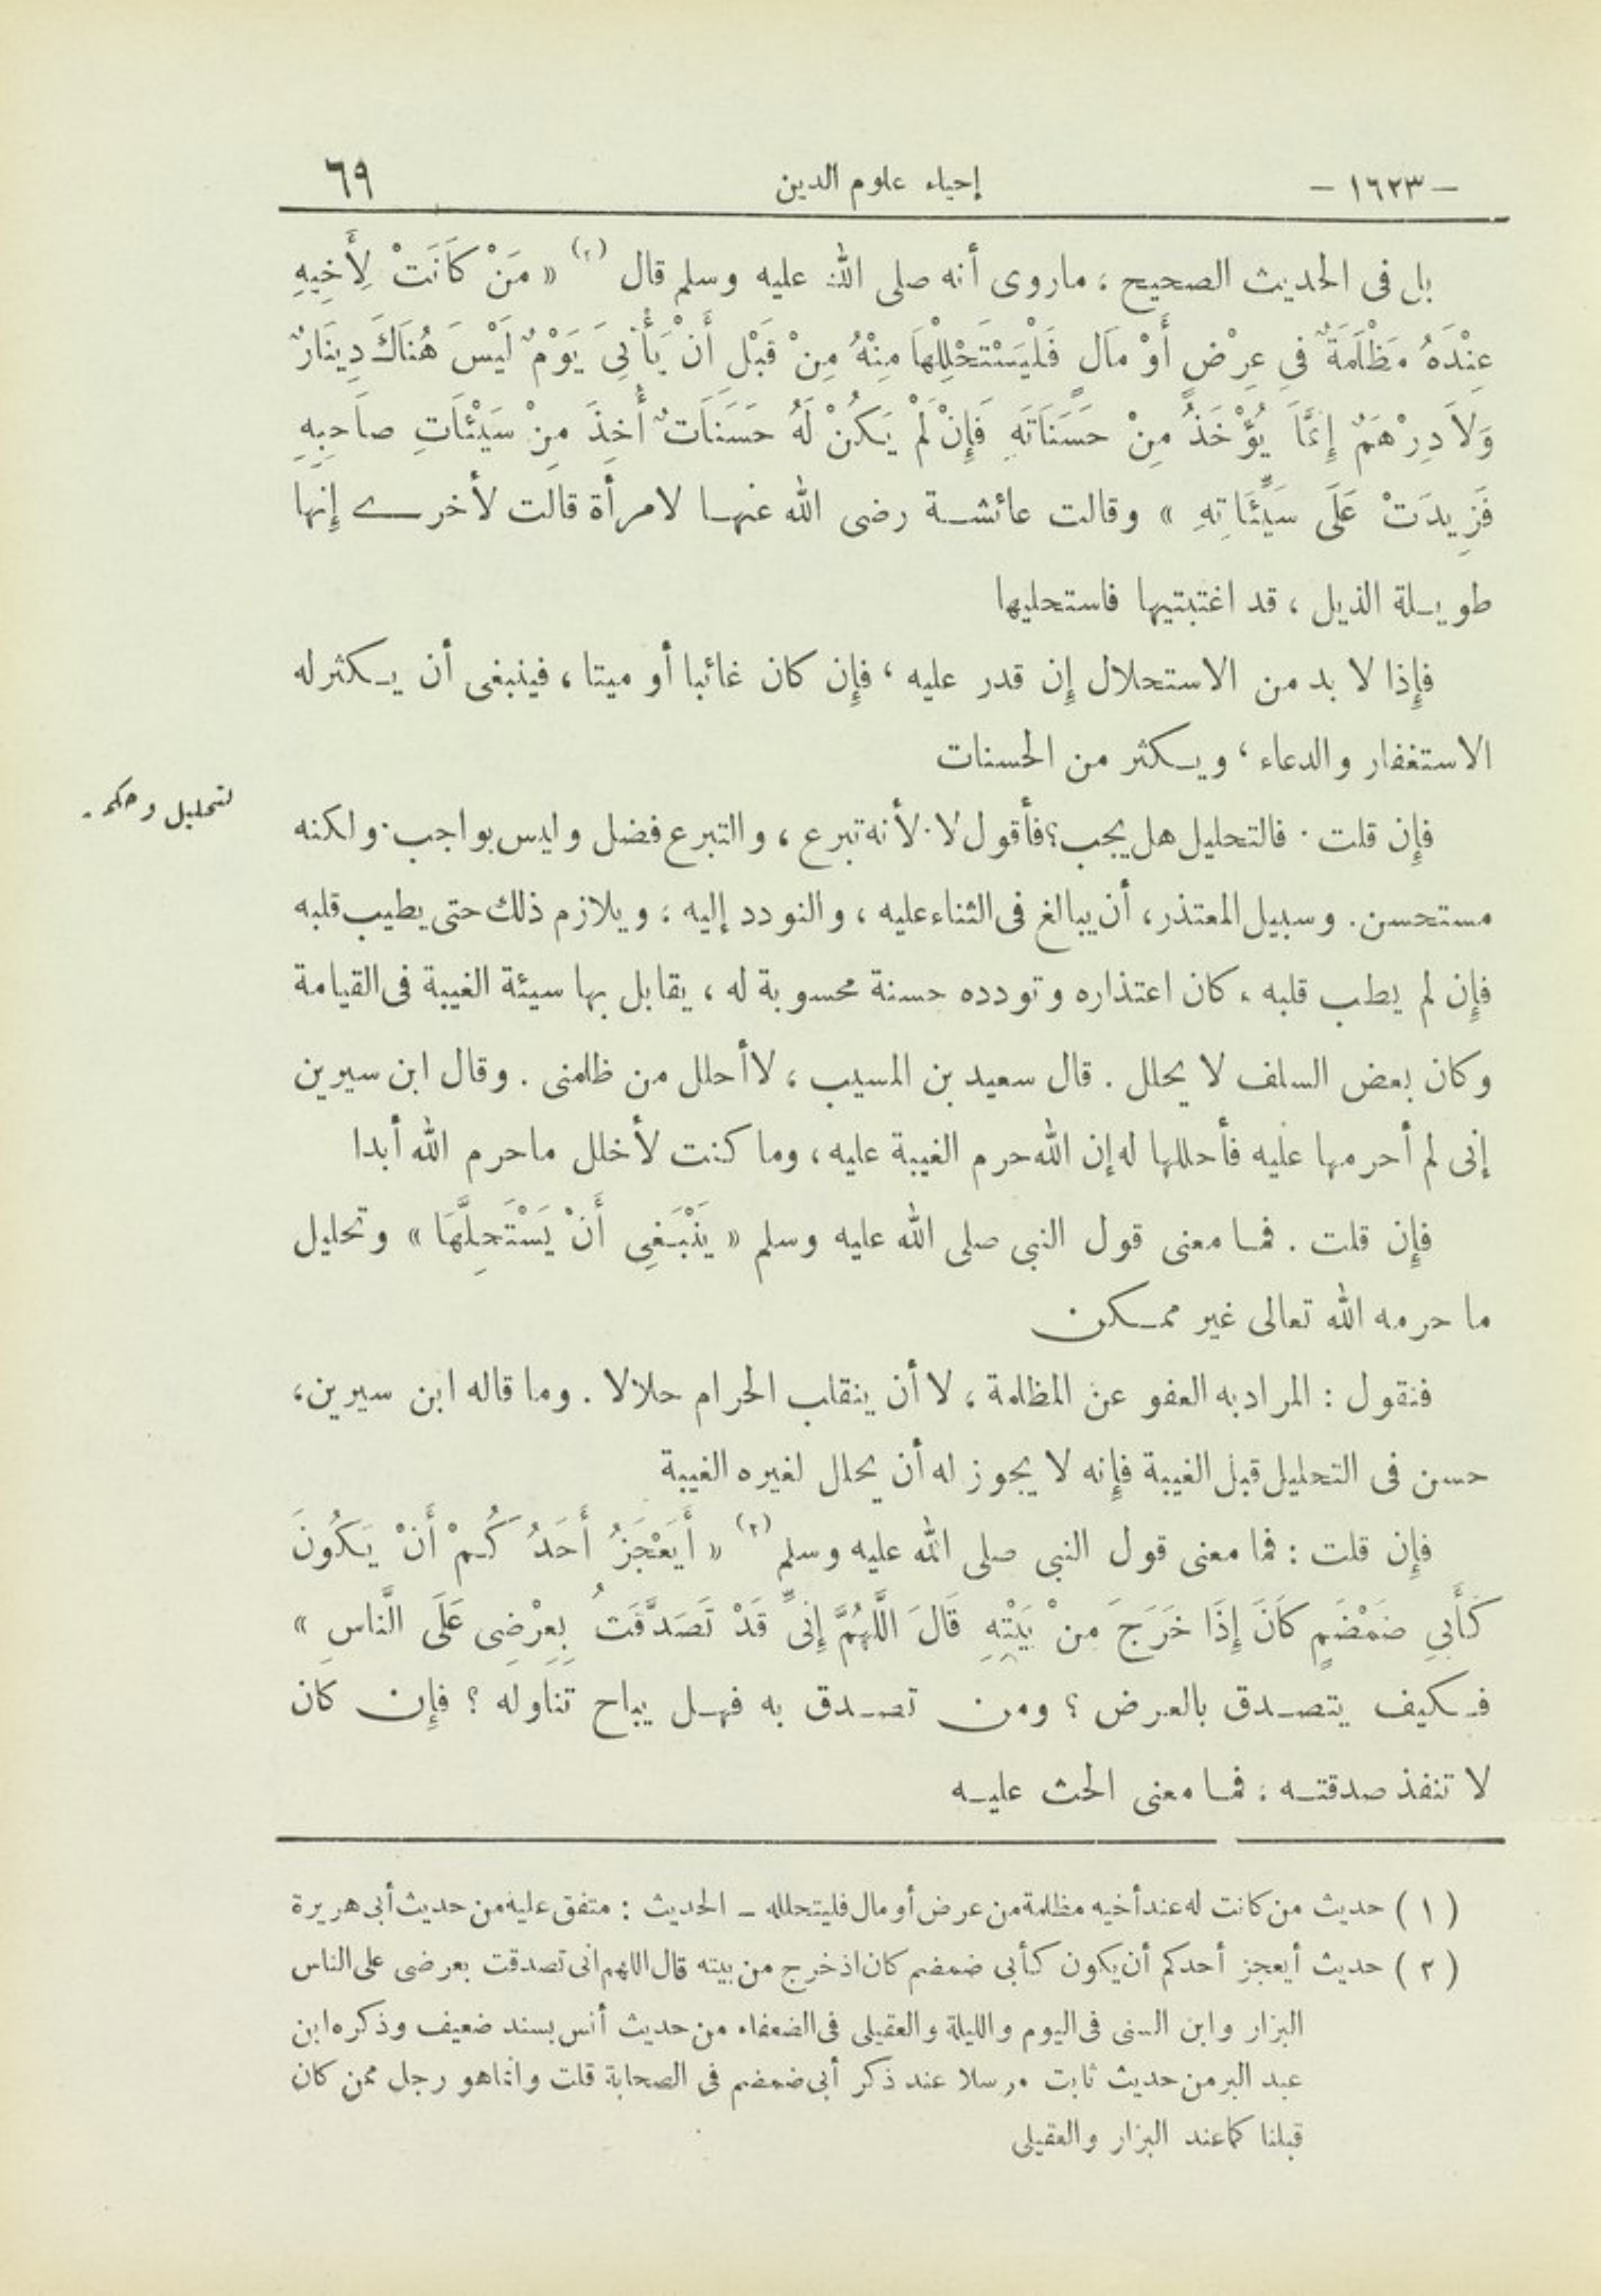 – ١٦٢٣ –
إحياء علوم الدين
٦٩
بل فى الحديث الصحيح ؛ ماروى أنه صلى الله عليه وسلم قال (١) « مَنْ كَانَتْ لِأَخِيهِ
عِنْدَهُ مَظْلَمَةٌ فِى عِرْضٍ أَوْ مَالٍ فَلْيَسْتَحْلِلْهَا مِنْهُ مِنْ قَبْلِ أَنْ يَأْتِىَ يَوْمٌ لَيْسَ هُنَاكَ دِينَارٌ
وَلَا دِرْهَمٌ إِنَّمَا يُؤْخَذُ مِنْ حَسَنَاتِهِ فَإِنْ لَمْ يَكُنْ لَهُ حَسَنَاتٌ أُخِذَ مِنْ سَيِّئَاتِ صَاحِبِهِ
فَزِيدَتْ عَلَى سَيِّئَاتِهِ » وقالت عائشة رضى الله عنها لامرأة قالت لأخرى إنها
طويلة الذيل ، قد اغتبتيها فاستحليها
فإذا لا بد من الاستحلال إن قدر عليه ، فإن كان غائبا أو ميتا ، فينبغى أن يكثر له
الاستغفار والدعاء ، ويكثر من الحسنات
لتحليل وحكمه
فإن قلت . فالتحليل هل يجب؟ فأقول لا . لأنه تبرع ، والتبرع فضل وليس بواجب . ولكنه
مستحسن . وسبيل المعتذر ، أن يبالغ فى الثناء عليه ، والتودد إليه ؛ ويلازم ذلك حتى يطيب قلبه
فإن لم يطب قلبه ، كان اعتذاره وتودده حسنة محسوبة له ، يقابل بها سيئة الغيبة فى القيامة
وكان بعض السلف لا يحلل . قال سعيد بن المسيب ، لا أحلل من ظلمنى . وقال ابن سيرين
إنى لم أحرمها عليه فأحللها له إن الله حرم الغيبة عليه ، وما كنت لأحلل ماحرم الله أبدا
فإن قلت . فما معنى قول النبى صلى الله عليه وسلم « يَنْبَغِى أَنْ يَسْتَحِلَّهَا » وتحليل
ما حرمه الله تعالى غير ممكن
فنقول : المراد به العفو عن المظلمة ، لا أن ينقلب الحرام حلالا . وما قاله ابن سيرين ،
حسن فى التحليل قبل الغيبة فإنه لا يجوز له أن يحلل لغيره الغيبة
فإن قلت : فما معنى قول النبى صلى الله عليه وسلم (٢) « أَيَعْجَزُ أَحَدُكُمْ أَنْ يَكُونَ
كَأَبِى ضَمْضَمٍ كَانَ إِذَا خَرَجَ مِنْ بَيْتِهِ قَالَ اللَّهُمَّ إِنِّى قَدْ تَصَدَّقْتُ بِعِرْضِى عَلَى النَّاسِ »
فكيف يتصدق بالعرض ؟ ومن تصدق به فهل يباح تناوله ؟ فإن كان
لا تنفذ صدقته ؛ فما معنى الحث عليه
( ١ ) حديث من كانت له عند أخيه مظلمة من عرض أو مال فليتحلله – الحديث : متفق عليه من حديث أبى هريرة
( ٢ ) حديث أيعجز أحدكم أن يكون كأبى ضمضم كان اذ خرج من بيته قال اللهم انى تصدقت بعرضى على الناس
البزار وابن السنى فى اليوم والليلة والعقيلى فى الضعفاء من حديث أنس بسند ضعيف وذكره ابن
عبد البر من حديث ثابت مرسلا عند ذكر أبى ضمضم فى الصحابة قلت وانماهو رجل ممن كان
قبلنا كما عند البزار والعقيلى